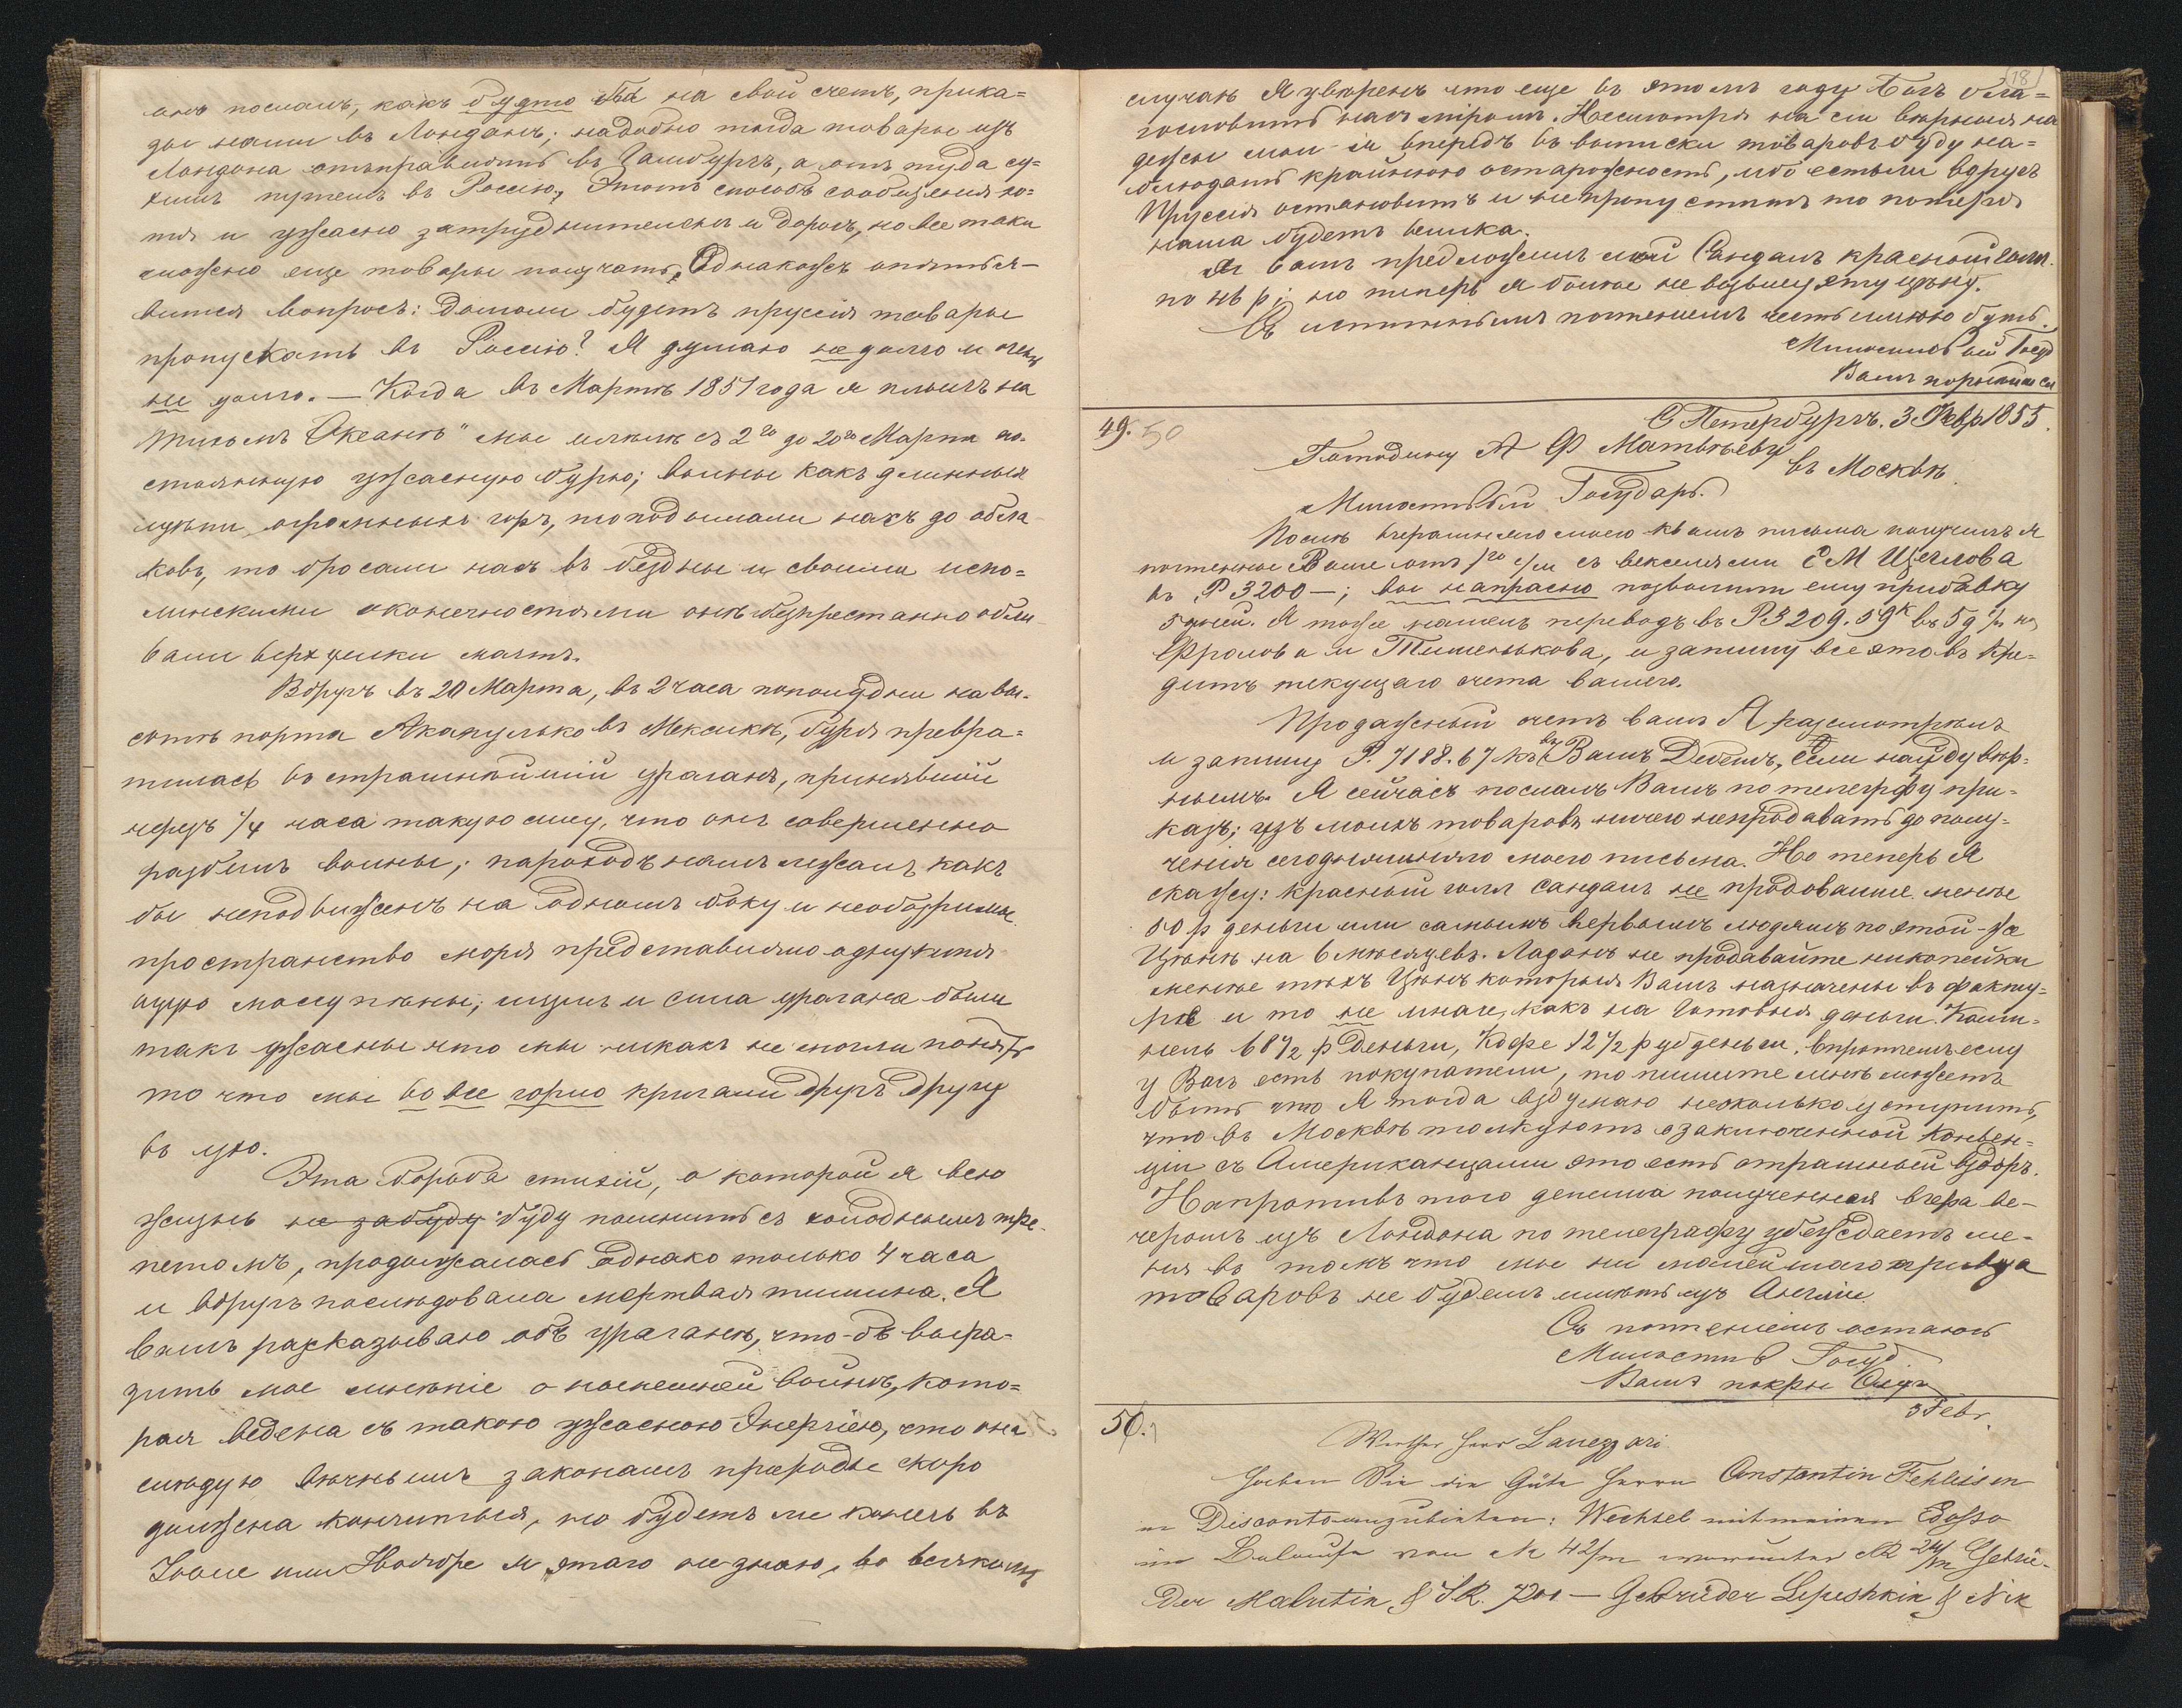 онъ послалъ, какъ будто бы на свой счетъ, прика=
зы въ Лондонъ; надобно тогда товары изъ
Лондона отъправить въ Гамбургъ, а отъ туда су=
химъ путемъ въ Россію, Этотъ способъ сообщенія хо=
тя и ужасно затруднителенъ и дорогъ, но все таки
можно еще товары получать, Однакожъ
вопросъ: долголи будетъ пруссія товары
пропускать въ Россію? Я думаю не долго и очень
не долго. — Когда въ Мартѣ 1851 года я плылъ на
Тихомъ Океанѣ" мы имѣли съ 2го до 20го Марта по-
стоянную ужасную бурю; волны какъ длинныя
цѣпи огромныхъ горъ, то подымали насъ до обла-
ковъ, то бросали насъ въ бездны и своими испо=
линскими оконечностями онѣ безпрестанно обли-
вали верхушки мачтъ.
Вдругъ въ 20 Марта, въ 2 часа пополудни на вы-
сотѣ порта Акапулько въ Мексикѣ, буря превра=
тилась въ страшнѣйшій ураганъ, принявшій
черезъ 1/4 часа такую силу, что онъ совершенно
разбилъ волны; пароходъ нашъ лежалъ какъ
бы неподвиженъ на одномъ боку и необозримое
пространство моря представляло одну
массу пѣны; шумъ и сила урагана были
такъ ужасны что мы никакъ не могли понять
то что мы во все горло кричали другъ другу
въ ухо.
Эта борьба стихій, о которой я всю
жизнь не забуду буду помнить съ холоднымъ тре-
петомъ, продолжалась однако только 4 часа
и вдругъ послѣдовала мертвая тишина. Я
вамъ разсказываю объ ураганѣ, что-бъ выра-
зить мое мнѣніе о нонешней войнѣ, кото=
рая ведена съ такою ужасною Энергіею, что она
слѣдую вѣчнымъ законамъ природы скоро
должна кончиться, но будетъ ли конецъ въ
Іюле или Ноябре я этаго не знаю, во всякомъ
18
случаѣ Я увѣренъ что еще въ этомъ году Богъ бла=
гословитъ насъ миромъ. Несмотря на сіи вѣрныя на
дежды мои я впередъ въ выписки товаровъ буду на=
блюдать крайнюю осторожность, ибо естьли вдругъ
Пруссія остановитъ и не пропуститъ то потеря
наша будетъ велика.
Я вамъ предложилъ мой Сандалъ красной
но теперь я болѣе не возьму эту цѣну.
Съ истиннымъ почтеніемъ честь имѣю быть
Милостивой Госуд
Вашъ
49. 50
С Петербургъ. 3 Февр 1855.
Господину А Ф Матвѣеву
въ Москвѣ.
Милостивый Государь.
Послѣ вчерашняго моего къ вамъ письма получилъ я
почтенное Ваше отъ 1го с/м съ векселями Е М Щеглова
въ Р 3200 —; вы напрасно позволили ему прибавку
5 дней. Я тоже нашелъ переводъ въ Р 3209. 59к въ 59 % на
Фролова и Тименькова, и запишу все это въ кре-
дитъ текущаго счета вашего.
Продажный счетъ вашъ Я разсмотрѣлъ
и запишу Р. 7188. 67 къ въ Вашъ Дебетъ, Если найду вѣр-
нымъ. Я сейчасъ послалъ Вамъ по телеграфу при-
казъ; изъ моихъ товаровъ ничего непродавать до полу-
ченія сегодняшняго моего письма. Но теперь Я
скажу: красный голл сандалъ не продоваите менѣе
50 р деньги или самымъ первымъ людямъ по этой-же
Цѣнѣ на 6 мѣсяцевъ. Ладанъ не продавайте никопейки
менѣе тѣхъ Цѣнъ которыя Вамъ назначены въ факту=
рѣ и то не иначе, какъ на Готовыя деньги.
68 1/2 р Деньги, Кофе 12 1/2 руб деньги, впрочемъ если
у Васъ есть покупатели, то пишите мнѣ можетъ
быть что Я тогда вздумаю несколько уступить,
что въ Москвѣ толкуютъ о заключенной Конвен=
ціи съ Американцами это есть страшный вздоръ.
Напротивъ того депеша полученная вчера ве-
черомъ изъ Лондона по телеграфу убеждаетъ ме-
ня въ томъ что мы ни малейшаго привоза
товаровъ не будемъ имѣть изъ Англіи.
Съ почтеніемъ остаюсь
Милостив Госуд.
Вашъ покрн Слуга
50.
3 Febr.
Werther Herr Lanezzari
Haben Sie die Güte Herrn Constantin Fehleisen
in Disconto anzubieten: Wechsel mit meinem Dosso
im Belaufe von 42/m worunter 24/m Gebrü-
der Malutin & SR. 7200 — Gebrüder Lepeshkin & Nik